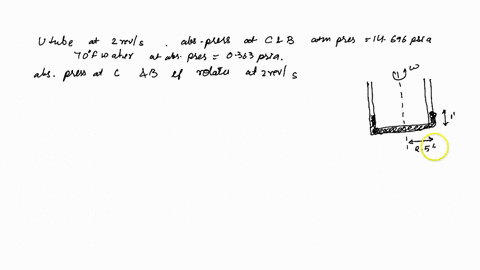 U tube at 2 rev/s . abs. press at C & B atm pres = 14.696 psia
70°F water at abs. pres = 0.363 psia.
abs. press at C & B if rotates at 2 rev/s
ω
1'
2.5'